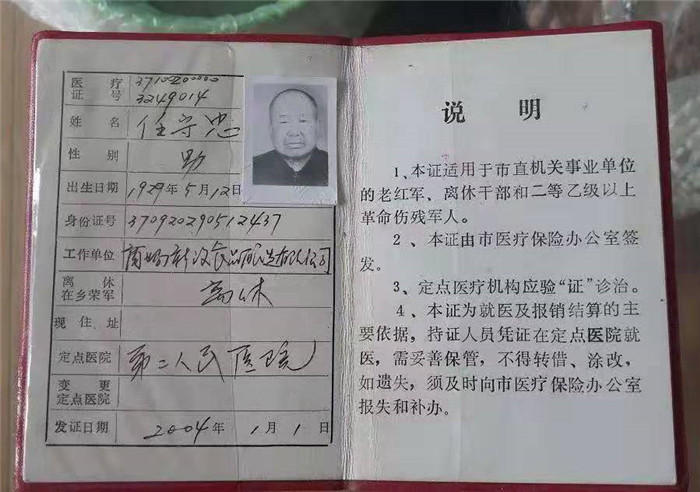 医疗证号 3710200000
3249014
姓名 任守忠
性别 男
出生日期 1929年5月12日
身份证号 370920290512437
工作单位
离休
在乡荣军 离休
现住址
定点医院 第二人民医院
变更
定点医院
发证日期 2004年1月1日
说明
1、本证适用于市直机关事业单位
的老红军、离休干部和二等乙级以上
革命伤残军人。
2、本证由市医疗保险办公室签
发。
3、定点医疗机构应验“证”诊治。
4、本证为就医及报销结算的主
要依据，持证人员凭证在定点医院就
医，需妥善保管，不得转借、涂改，
如遗失，须及时向市医疗保险办公室
报失和补办。